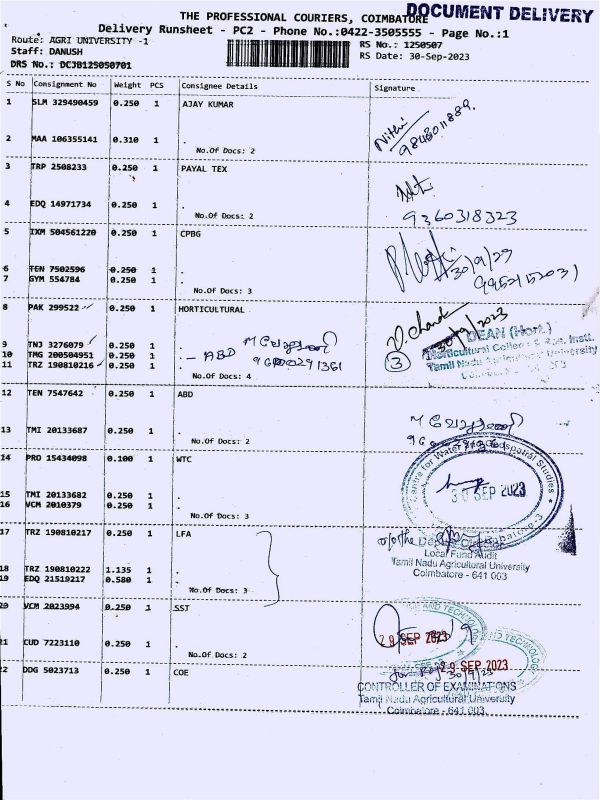 DOCUMENT DELIVERY
THE PROFESSIONAL COURIERS, COIMBATORE
Delivery Runsheet - PC2 - Phone No.:0422-3505555 - Page No.:1
Route: AGRI UNIVERSITY -1
RS No.: 1250507
Staff: DANUSH
RS Date: 30-Sep-2023
DRS No.: DCJB125050701
S No Consignment No Weight PCS Consignee Details Signature
1 SLM 329490459 0.250 1 AJAY KUMAR
Nithi
9848011889.
2 MAA 106355141 0.310 1 .
No.Of Docs: 2
3 TRP 2508233 0.250 1 PAYAL TEX
4 EDQ 14971734 0.250 1 .
9360318323
No.Of Docs: 2
5 IXM 504561220 0.250 1 CPBG
30/9/23
6 TEN 7502596 0.250 1
7 GYM 554784 0.250 1 .
9952152031
No.Of Docs: 3
8 PAK 299522 0.250 1 HORTICULTURAL
30/9/2023
DEAN (Hort.)
9 TNJ 3276079 0.250 1
10 TMG 200504951 0.250 1 - ABD
11 TRZ 190810216 0.250 1 .
3
Tamil Nadu Agricultural University
No.Of Docs: 4
12 TEN 7547642 0.250 1 ABD
13 TMI 20133687 0.250 1 .
No.Of Docs: 2
14 PRO 15434098 0.100 1 WTC
Centre for Water and Geospatial Studies
30 SEP 2023
15 TMI 20133682 0.250 1
16 VCM 2010379 0.250 1 .
No.Of Docs: 3
17 TRZ 190810217 0.250 1 LFA
Local Fund Audit
Tamil Nadu Agricultural University
Coimbatore - 641 003
18 TRZ 190810222 1.135 1 .
19 EDQ 21519217 0.580 1
No.Of Docs: 3
20 VCM 2023994 0.250 1 SST
29 SEP 2023
21 CUD 7223110 0.250 1 .
No.Of Docs: 2
29 SEP 2023
22 DDG 5023713 0.250 1 COE
30/9/23
CONTROLLER OF EXAMINATIONS
Tamil Nadu Agricultural University
Coimbatore - 641 003.